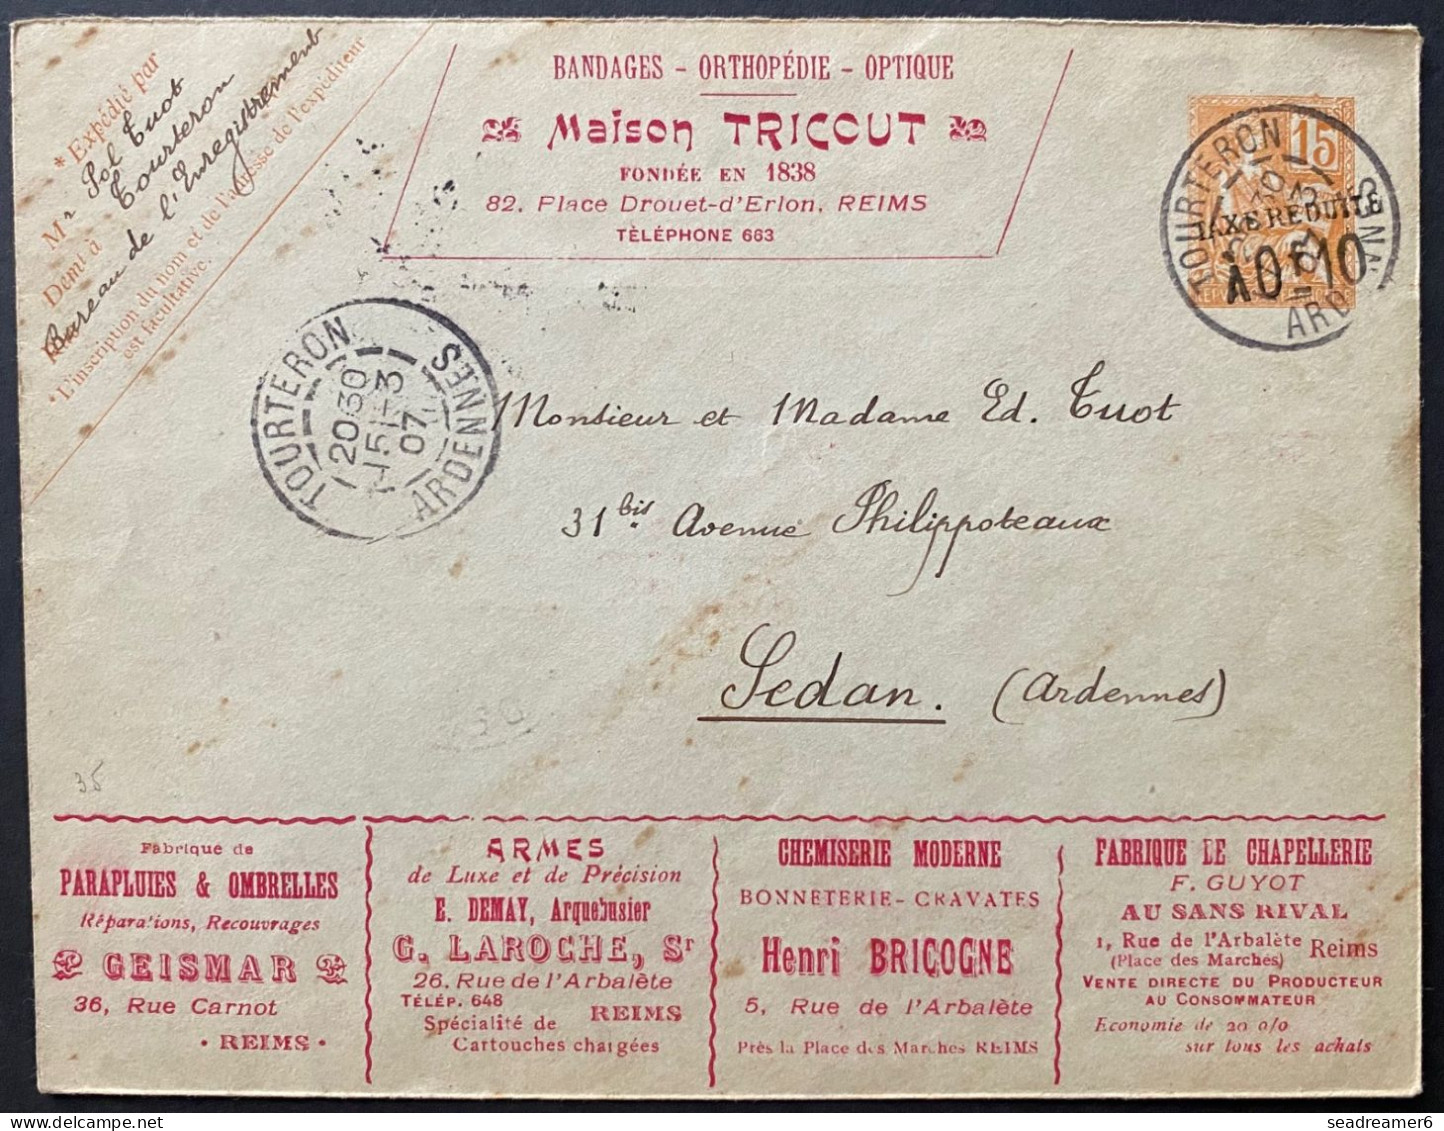 * Expédié par
Mr Sol Tuot
Tourteron
Demt à
Bureau de l'Enregistrement
* L'inscription du nom et de l'adresse de l'expéditeur
est facultative.
BANDAGES - ORTHOPÉDIE - OPTIQUE
Maison TRICOUT
FONDÉE EN 1838
82, Place Drouet-d'Erlon, REIMS
TÈLÉPHONE 663
15
TAXE RÉDUITE
À 0f10
TOURTERON
ARDENNES
TOURTERON
20 30
15 - 3
07
ARDENNES
Monsieur et Madame Ed. Tuot
31 bis Avenue Philippoteaux
Sedan. (Ardennes)
35
Fabrique de
PARAPLUIES & OMBRELLES
Réparations, Recouvrages
GEISMAR
36, Rue Carnot
• REIMS •
ARMES
de Luxe et de Précision
E. DEMAY, Arquebusier
G. LAROCHE, Sr
26, Rue de l'Arbalète
TÉLÉP. 648
REIMS
Spécialité de
Cartouches chargées
CHEMISERIE MODERNE
BONNETERIE - CRAVATES
Henri BRICOGNE
5, Rue de l'Arbalète
Près la Place des Marches REIMS
FABRIQUE DE CHAPELLERIE
F. GUYOT
AU SANS RIVAL
1, Rue de l'Arbalète
(Place des Marches)
Reims
VENTE DIRECTE DU PRODUCTEUR
AU CONSOMMATEUR
Economie de 20 0/0
sur tous les achats
seadreamer6 @ delcampe.net